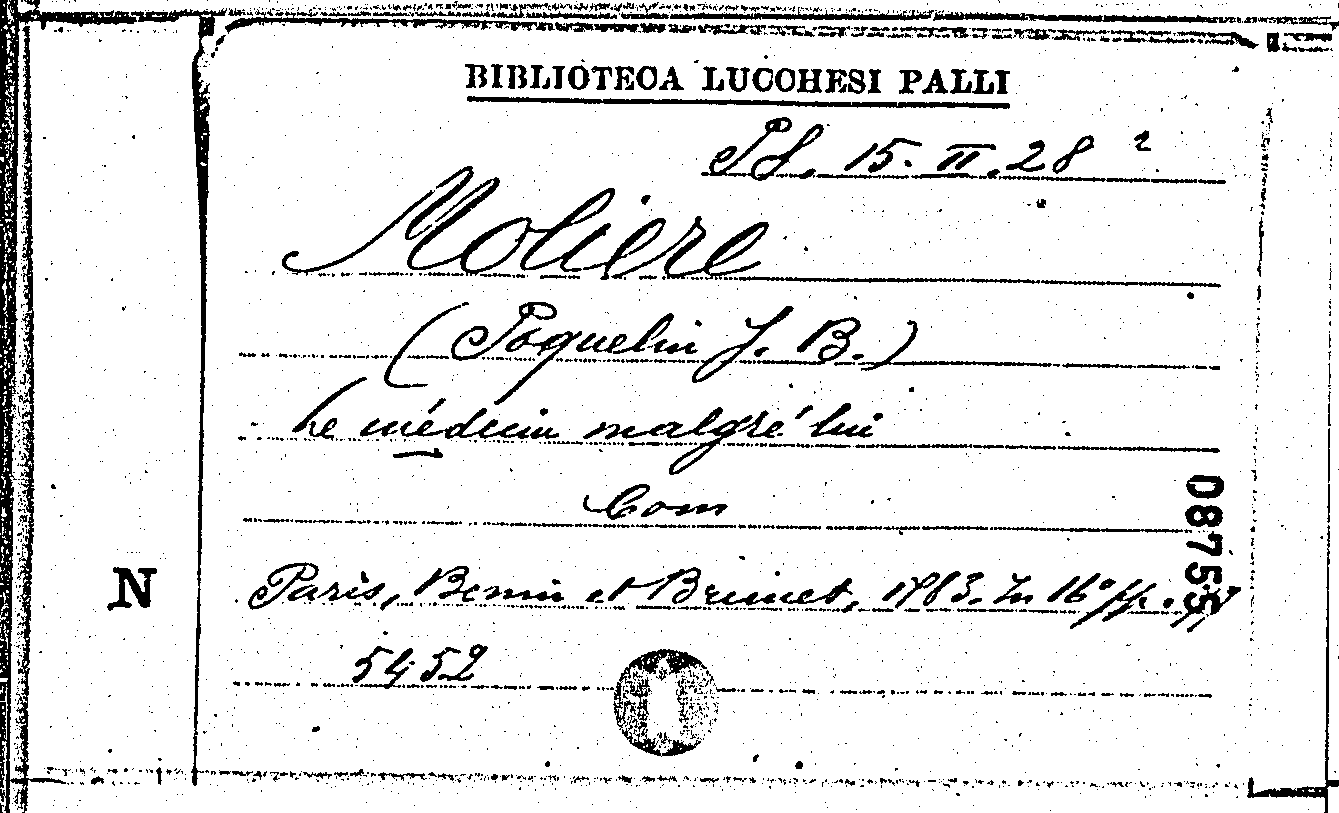 BIBLIOTECA LUCCHESI PALLI
Pl. 15. II. 28 ²
Molière
(Poquelin J. B.)
Le médecin malgré lui
Com
08755
N
Paris, Bemin et Brunet, 1783. In 16° pp.
5452